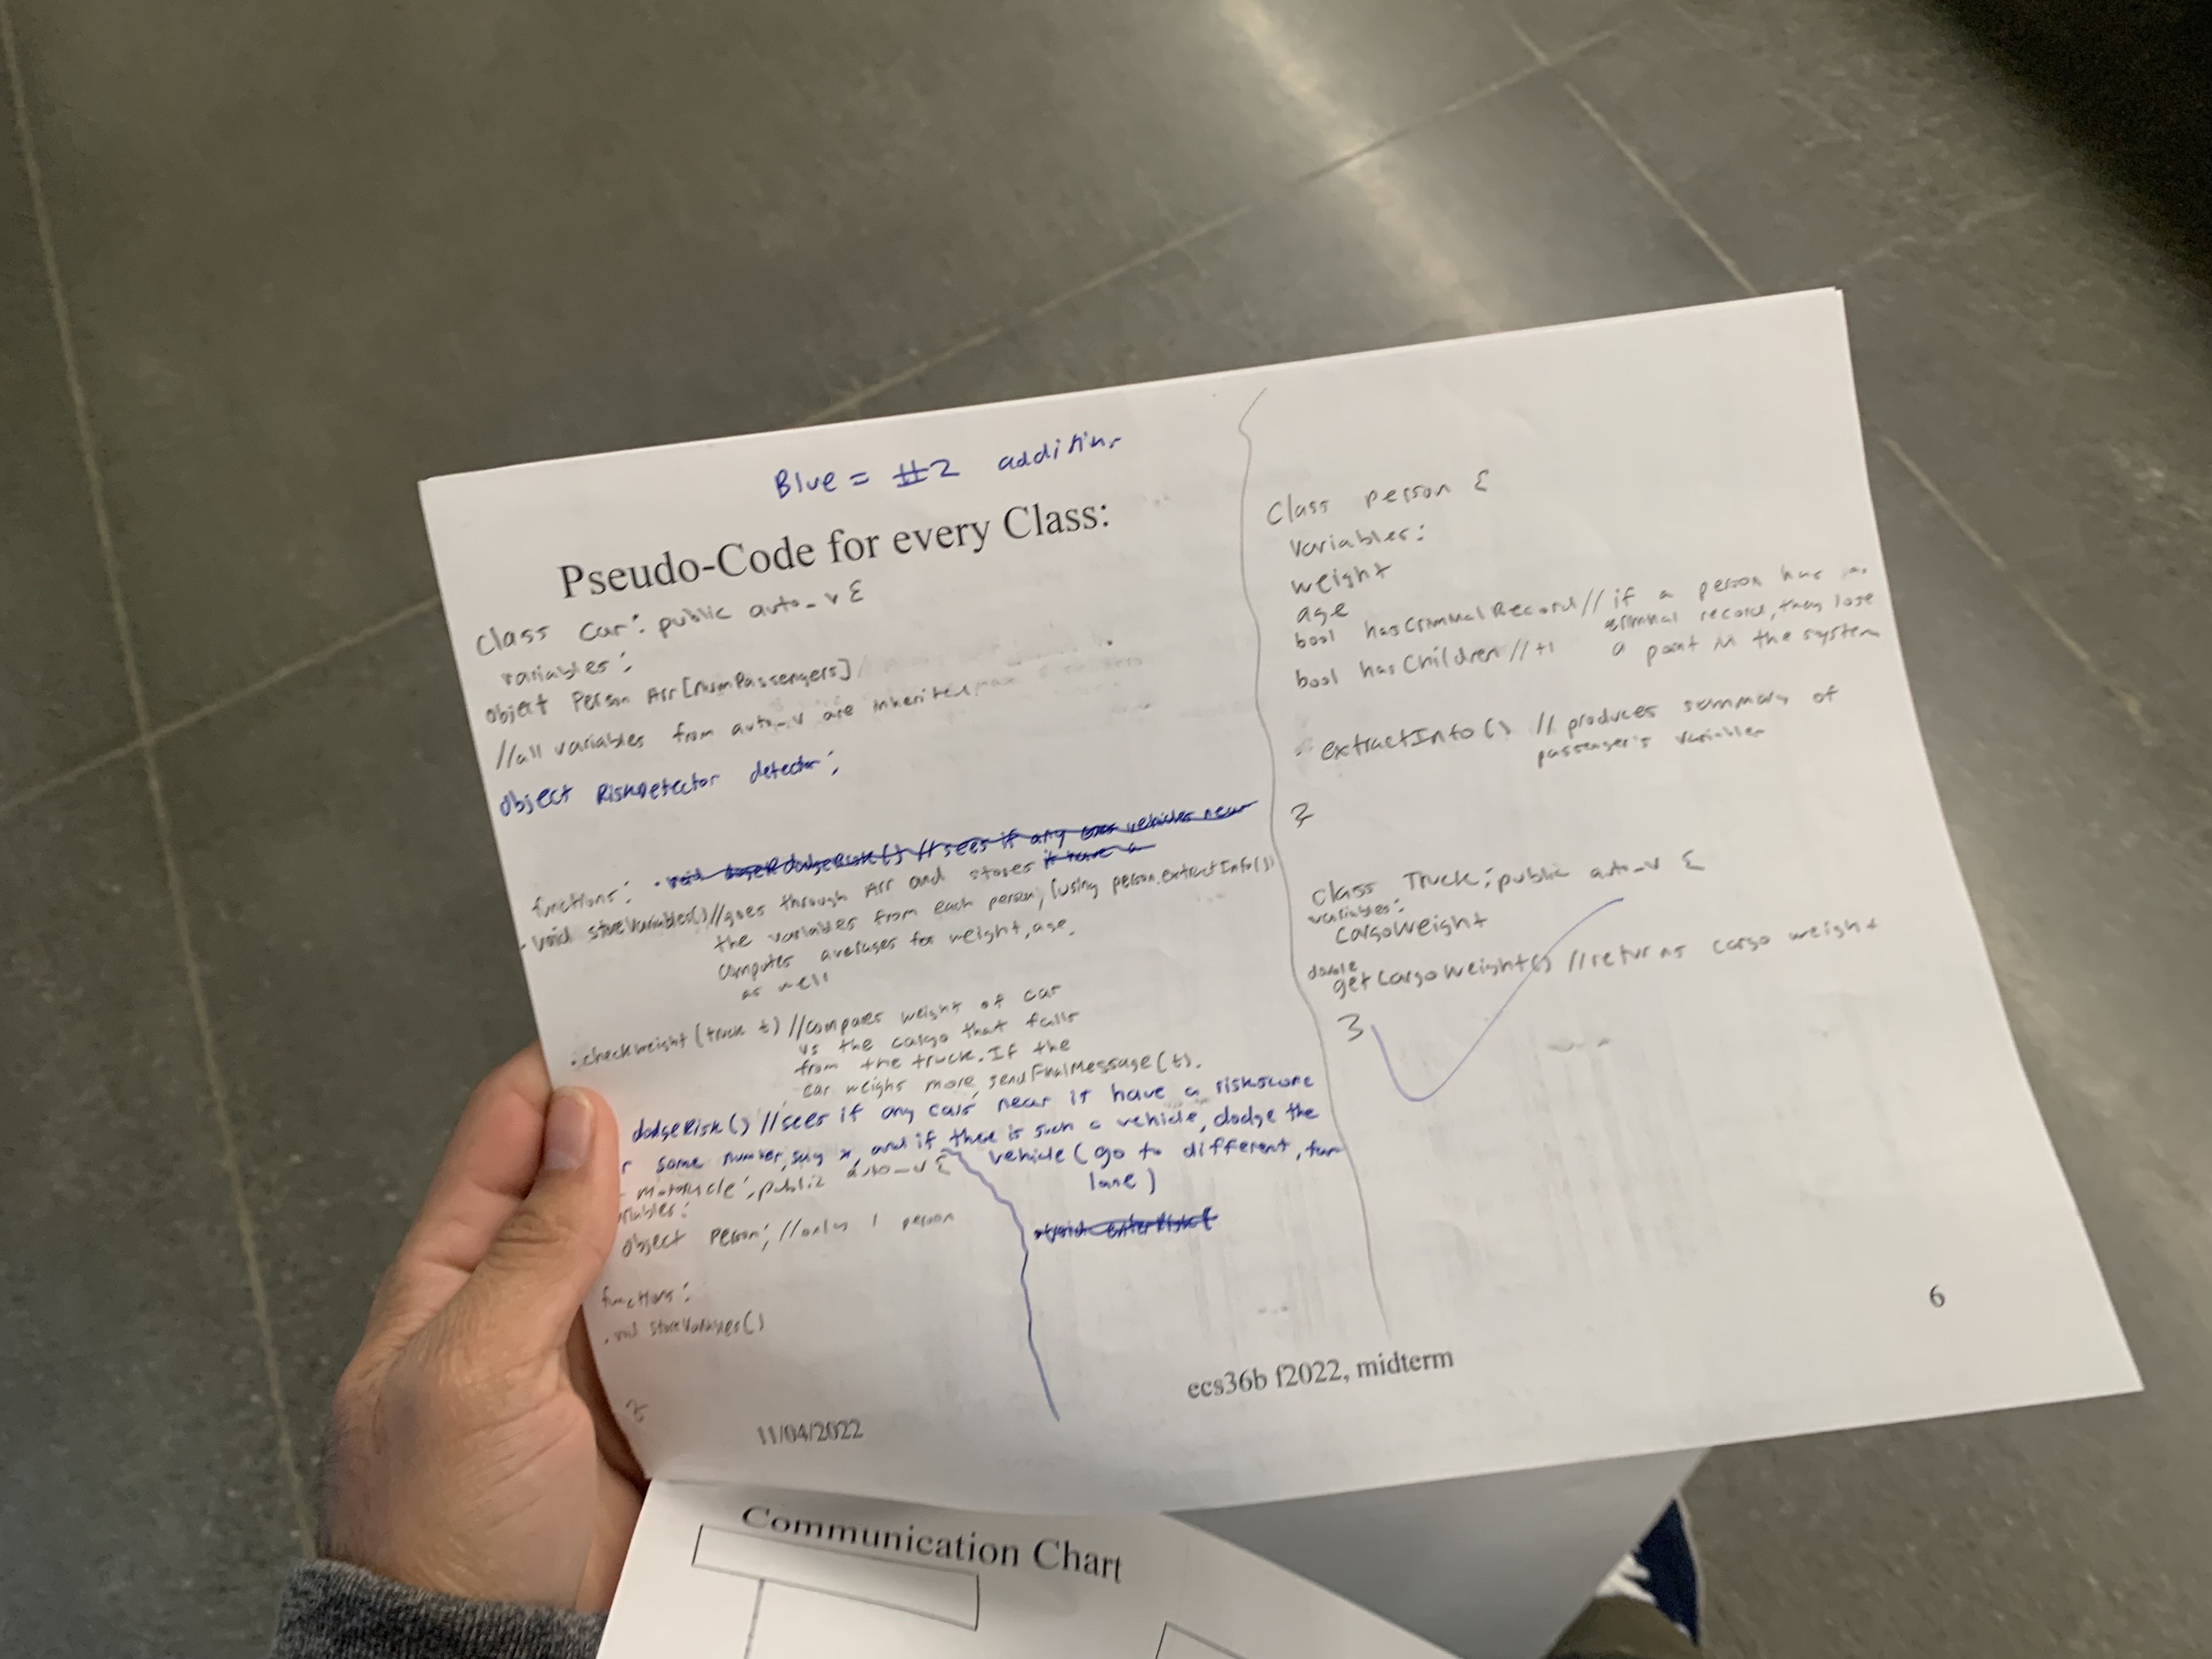 Blue = #2 additions
Pseudo-Code for every Class:
Class Car: public auto_v {
variables:
object Person Arr[numPassengers]
//all variables from auto_v are inherited
object RiskDetector detector;
functions:
. void storeVariables() //goes through Arr and stores
the variables from each person, (using person.extractInfo())
computes averages for weight, age,
as well
. checkweight (truck t) //compares weight of car
vs the cargo that falls
from the truck. If the
car weighs more, sendFinalMessage(t).
dodgeRisk() //sees if any cars near it have a riskscore
some number, say x, and if there is such a vehicle, dodge the
vehicle (go to different, fur
lane)
motorcycle: public auto_v {
object person; //only 1 person
functions:
. void storeVariables()
}
Class person {
variables:
weight
age
bool hasCriminalRecord // if a person has
criminal record, they lose
a point in the system
bool hasChildren //+1
extractInfo() // produces summary of
passenger's variables
}
Class Truck: public auto_v {
variables:
cargoWeight
double getCargoWeight() //returns cargo weight
}
11/04/2022
ecs36b f2022, midterm
6
Communication Chart